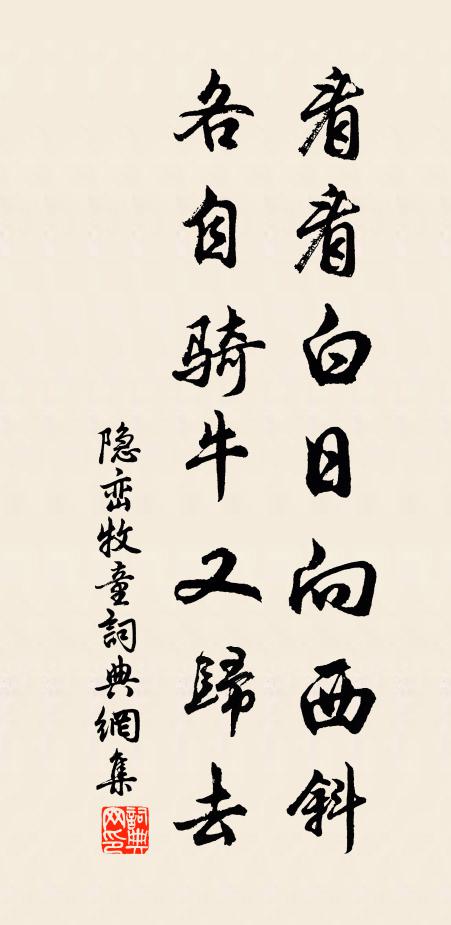 看看白日向西斜
各自骑牛又歸去
隐峦牧童詞典網集
詞典网印